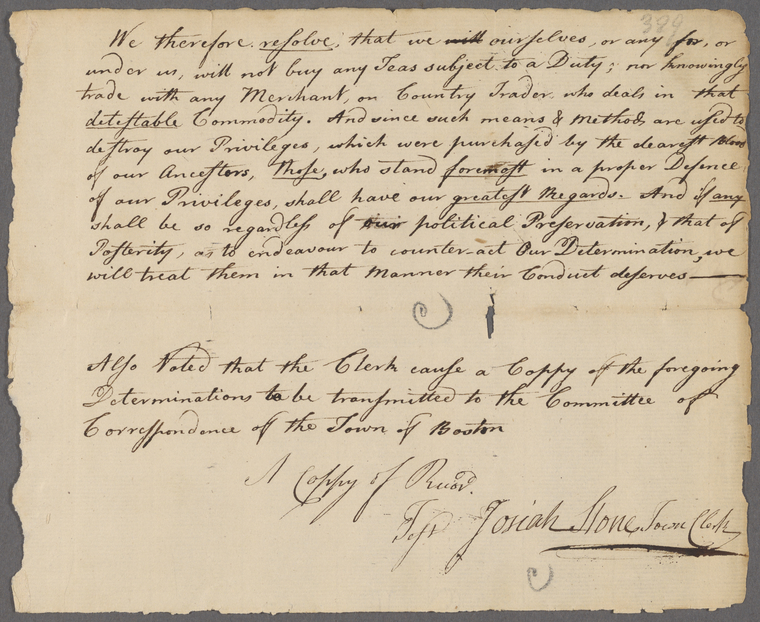 389
We therefore resolve, that we will ourselves, or any for, or
under us, will not buy any Teas subject to a Duty; nor knowingly
trade with any Merchant, or Country Trader who deals in that
detestable Commodity. And since such means & methods are used to
destroy our Privileges, which were purchased by the dearest Blood
of our Ancestors, those, who stand foremost in a proper Defence
of our Privileges, shall have our greatest Regards. And if any
shall be so regardless of their political Preservation, & that of
Posterity, as to endeavour to counter-act Our Determination, we
will treat them in that Manner their Conduct deserves
Also Voted that the Clerk cause a Coppy of the foregoing
Determinations to be transmitted to the Committee of
Correspondence of the Town of Boston
A Coppy of Record.
Test Josiah Stone Town Clerk